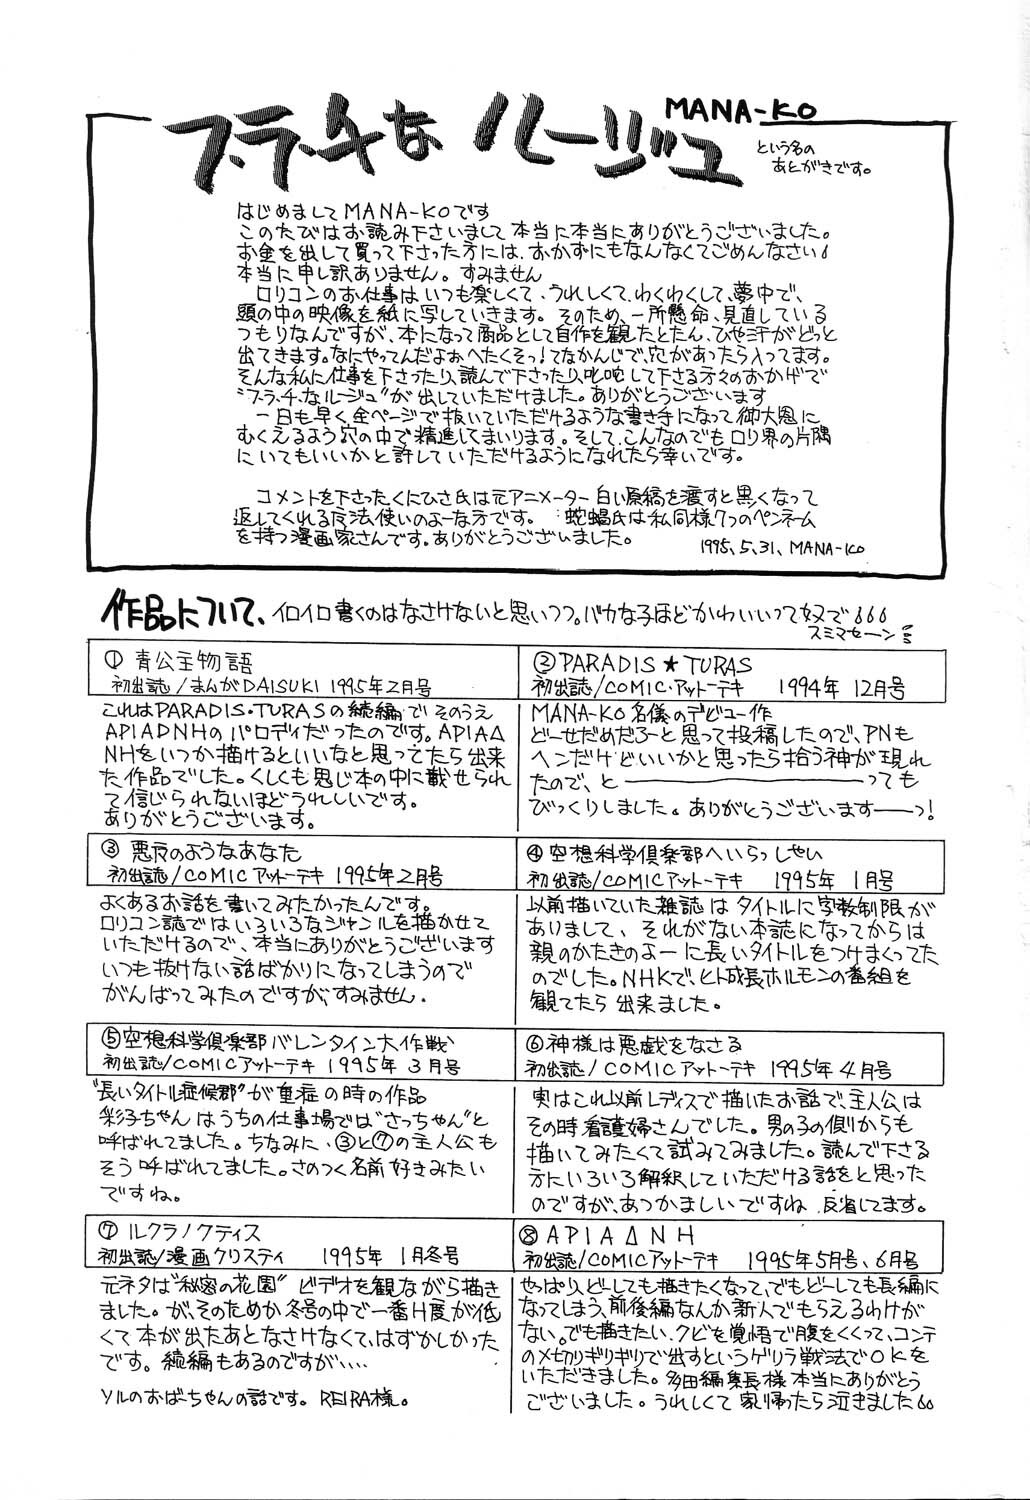 フ・ラ・チな ルージュ
MANA-KO
という名の
あとがきです。
はじめましてMANA-KOです
このたびはお読み下さいまして本当に本当にありがとうございました。
お金を出して買って下さった方には、おかずにもなんなくてごめんなさい
本当に申し訳ありません。すみません
ロリコンのお仕事はいつも楽しくて、うれしくて、わくわくして、夢中で、
頭の中の映像を紙に写していきます。そのため、一所懸命、見直している
つもりなんですが、本になって商品として自作を観たとたん、ひや汗がどっと
出てきます。なにやってんだよぉへたくそっ!てなかんじで、穴があったら入ってます。
そんな私に仕事を下さったり、読んで下さったり、叱咤して下さる方々のおかげで
"フ・ラ・チ・なルージュ"が出していただけました。ありがとうございます
一日も早く全ページで抜いていただけるような書き手になって御大恩に
むくえるよう穴の中で精進してまいります。そして、こんなのでもロリ界の片隅
にいてもいいかと許していただけるようになれたら幸いです。
コメントを下さったくにひさ氏は元アニメーター白い原稿を渡すと黒くなって
返してくれる魔法使いのよーな方です。蛇蝎氏は私同様7つのペンネーム
を持つ漫画家さんです。ありがとうございました。
1995、5、31、MANA-KO
作品について、イロイロ書くのはなさけないと思いつつ。バカな子ほどかわいいって奴で
スミマセーン
① 青公主物語
初出誌/まんがDAISUKI 1995年2月号
これはPARADIS・TURASの続編でそのうえ
APIAΔNHのパロディだったのです。APIAΔ
NHをいつか描けるといいなと思ってたら出来
た作品でした。くしくも同じ本の中に載せられ
て信じられないほどうれしいです。
ありがとうございます。
② PARADIS★TURAS
初出誌/COMIC・アットーテキ 1994年 12月号
MANA-KO名儀のデビュー作
どーせだめだろーと思って投稿したので、PNも
ヘンだけどいいかと思ったら拾う神が現れ
たので、と――――――っても
びっくりしました。ありがとうございます――っ!
③ 悪夜のようなあなた
初出誌/COMICアットーテキ 1995年2月号
よくあるお話を書いてみたかったんです。
ロリコン誌ではいろいろなジャンルを描かせて
いただけるので、本当にありがとうございます
いつも抜けない話ばかりになってしまうので
がんばってみたのですが、すみません.
④ 空想科学倶楽部へいらっしゃい
初出誌/COMICアットーテキ 1995年 1月号
以前描いていた雑誌はタイトルに字数制限が
ありまして、それがない本誌になってからは
親のかたきのよーに長いタイトルをつけまくってた
のでした。NHKで、ヒト成長ホルモンの番組を
観てたら出来ました。
⑤ 空想科学倶楽部バレンタイン大作戦
初出誌/COMICアットーテキ 1995年 3月号
"長いタイトル症候郡"が重症の時の作品
彩子ちゃんはうちの仕事場では"さっちゃん"と
呼ばれてました。ちなみに、③と⑦の主人公も
そう呼ばれてました。さのつく名前好きみたい
ですね。
⑥ 神様は悪戯をなさる
初出誌/COMICアットーテキ 1995年4月号
実はこれ以前レディスで描いたお話で、主人公は
その時看護婦さんでした。男の子の側からも
描いてみたくて試みてみました。読んで下さる
方にいろいろ解釈していただける話をと思った
のですが、あつかましいですね 反省してます。
⑦ ルクラノクティス
初出誌/漫画クリスティ 1995年 1月冬号
元ネタは"秘密の花園" ビデオを観ながら描き
ました。が、そのためか冬号の中で一番H度が低
くて本が出たあとなさけなくて、はずかしかった
です。続編もあるのですが‥‥
ソルのおばーちゃんの話です。REIRA様。
⑧ APIAΔNH
初出誌/COMICアットーテキ 1995年5月号、6月号
やっぱり、どーしても描きたくなって、でもどーしても長編に
なってしまう、前後編なんか新人でもらえるわけが
ない。でも描きたい、クビを覚悟で腹をくくって、コンテ
の〆切りギリギリで出すというゲリラ戦法でOKを
いただきました。多田編集長様本当にありがとう
ございました。うれしくて家帰ったら泣きました